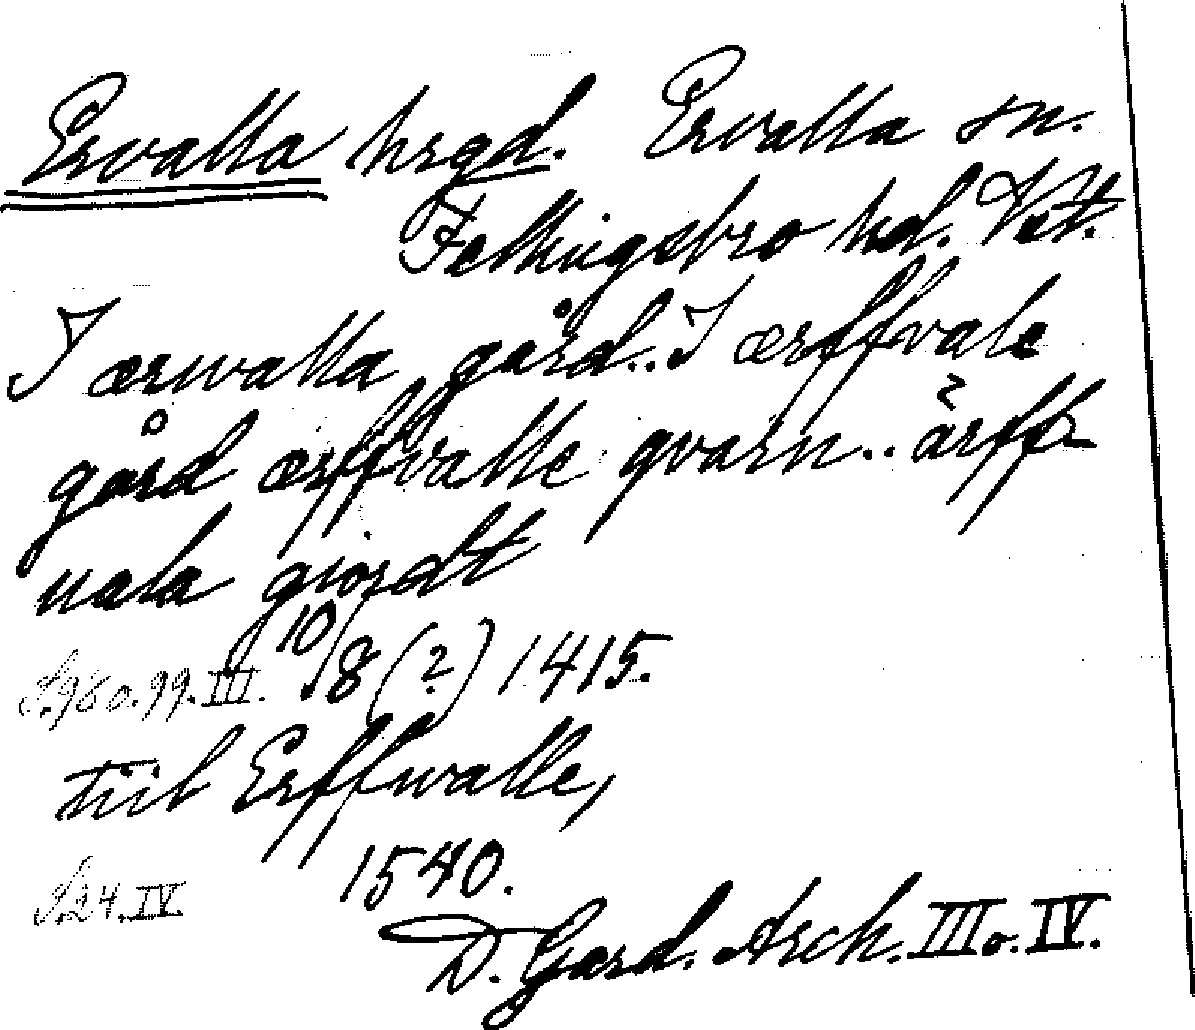 Ervalla hrgd. Ervalla sn.
Fellingsbro hd. Vstm.
I ærwalla gård.. I ærffvale
gård ærffvalle qvarn.. ärff-
uala giordt
10/8 (?) 1415.
S.98o.99.III.
tiil Erffwalle,
1540.
S.24.IV.
D. Gard. Arch. III o. IV.